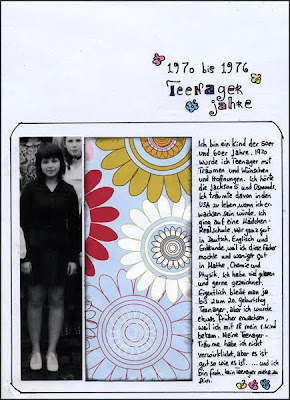 1970 bis 1976
Teenager
jahre
Ich bin ein Kind der 50er
und 60er Jahre. 1970
wurde ich Teenager mit
Träumen und Wünschen
und Hoffnungen. Ich hörte
die Jackson 5 und Osmonds.
Ich träumte davon in den
USA zu leben wenn ich er-
wachsen sein würde. Ich
ging auf eine Mädchen-
Realschule, war ganz gut
in Deutsch, Englisch und
Erdkunde, weil ich diese Fächer
mochte und weniger gut
in Mathe, Chemie und
Physik. Ich habe viel gelesen
und gerne gezeichnet.
Eigentlich bleibt man ja
bis zum 20. Geburtstag
Teenager, aber ich wurde
etwas früher erwachsen
weil ich mit 18 mein 1. Kind
bekam. Meine Teenager-
Träume habe ich nicht
verwirklicht, aber es ist
gut so wie es ist ... und ich
bin froh, kein Teenager mehr zu
sein.